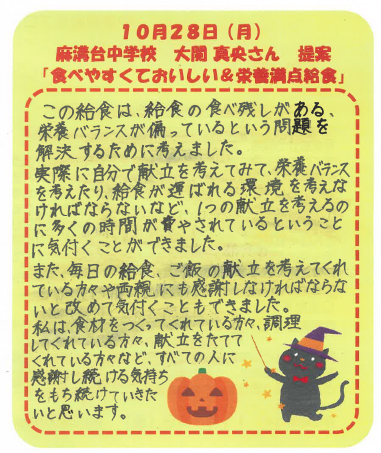 10月28日（月）
麻溝台中学校　大関 真央さん　提案
「食べやすくておいしい＆栄養満点給食」
この給食は、給食の食べ残しがある、
栄養バランスが偏っているという問題を
解決するために考えました。
実際に自分で献立を考えてみて、栄養バランス
を考えたり、給食が運ばれる環境を考えな
ければならないなど、1つの献立を考えるの
に多くの時間が費やされているということ
に気付くことができました。
また、毎日の給食、ご飯の献立を考えてくれ
ている方々や両親にも感謝しなければならな
いと改めて気付くこともできました。
私は、食材をつくってくれている方々、調理
してくれている方々、献立をたてて
くれている方々など、すべての人に
感謝し続ける気持ち
をもち続けていきた
いと思います。